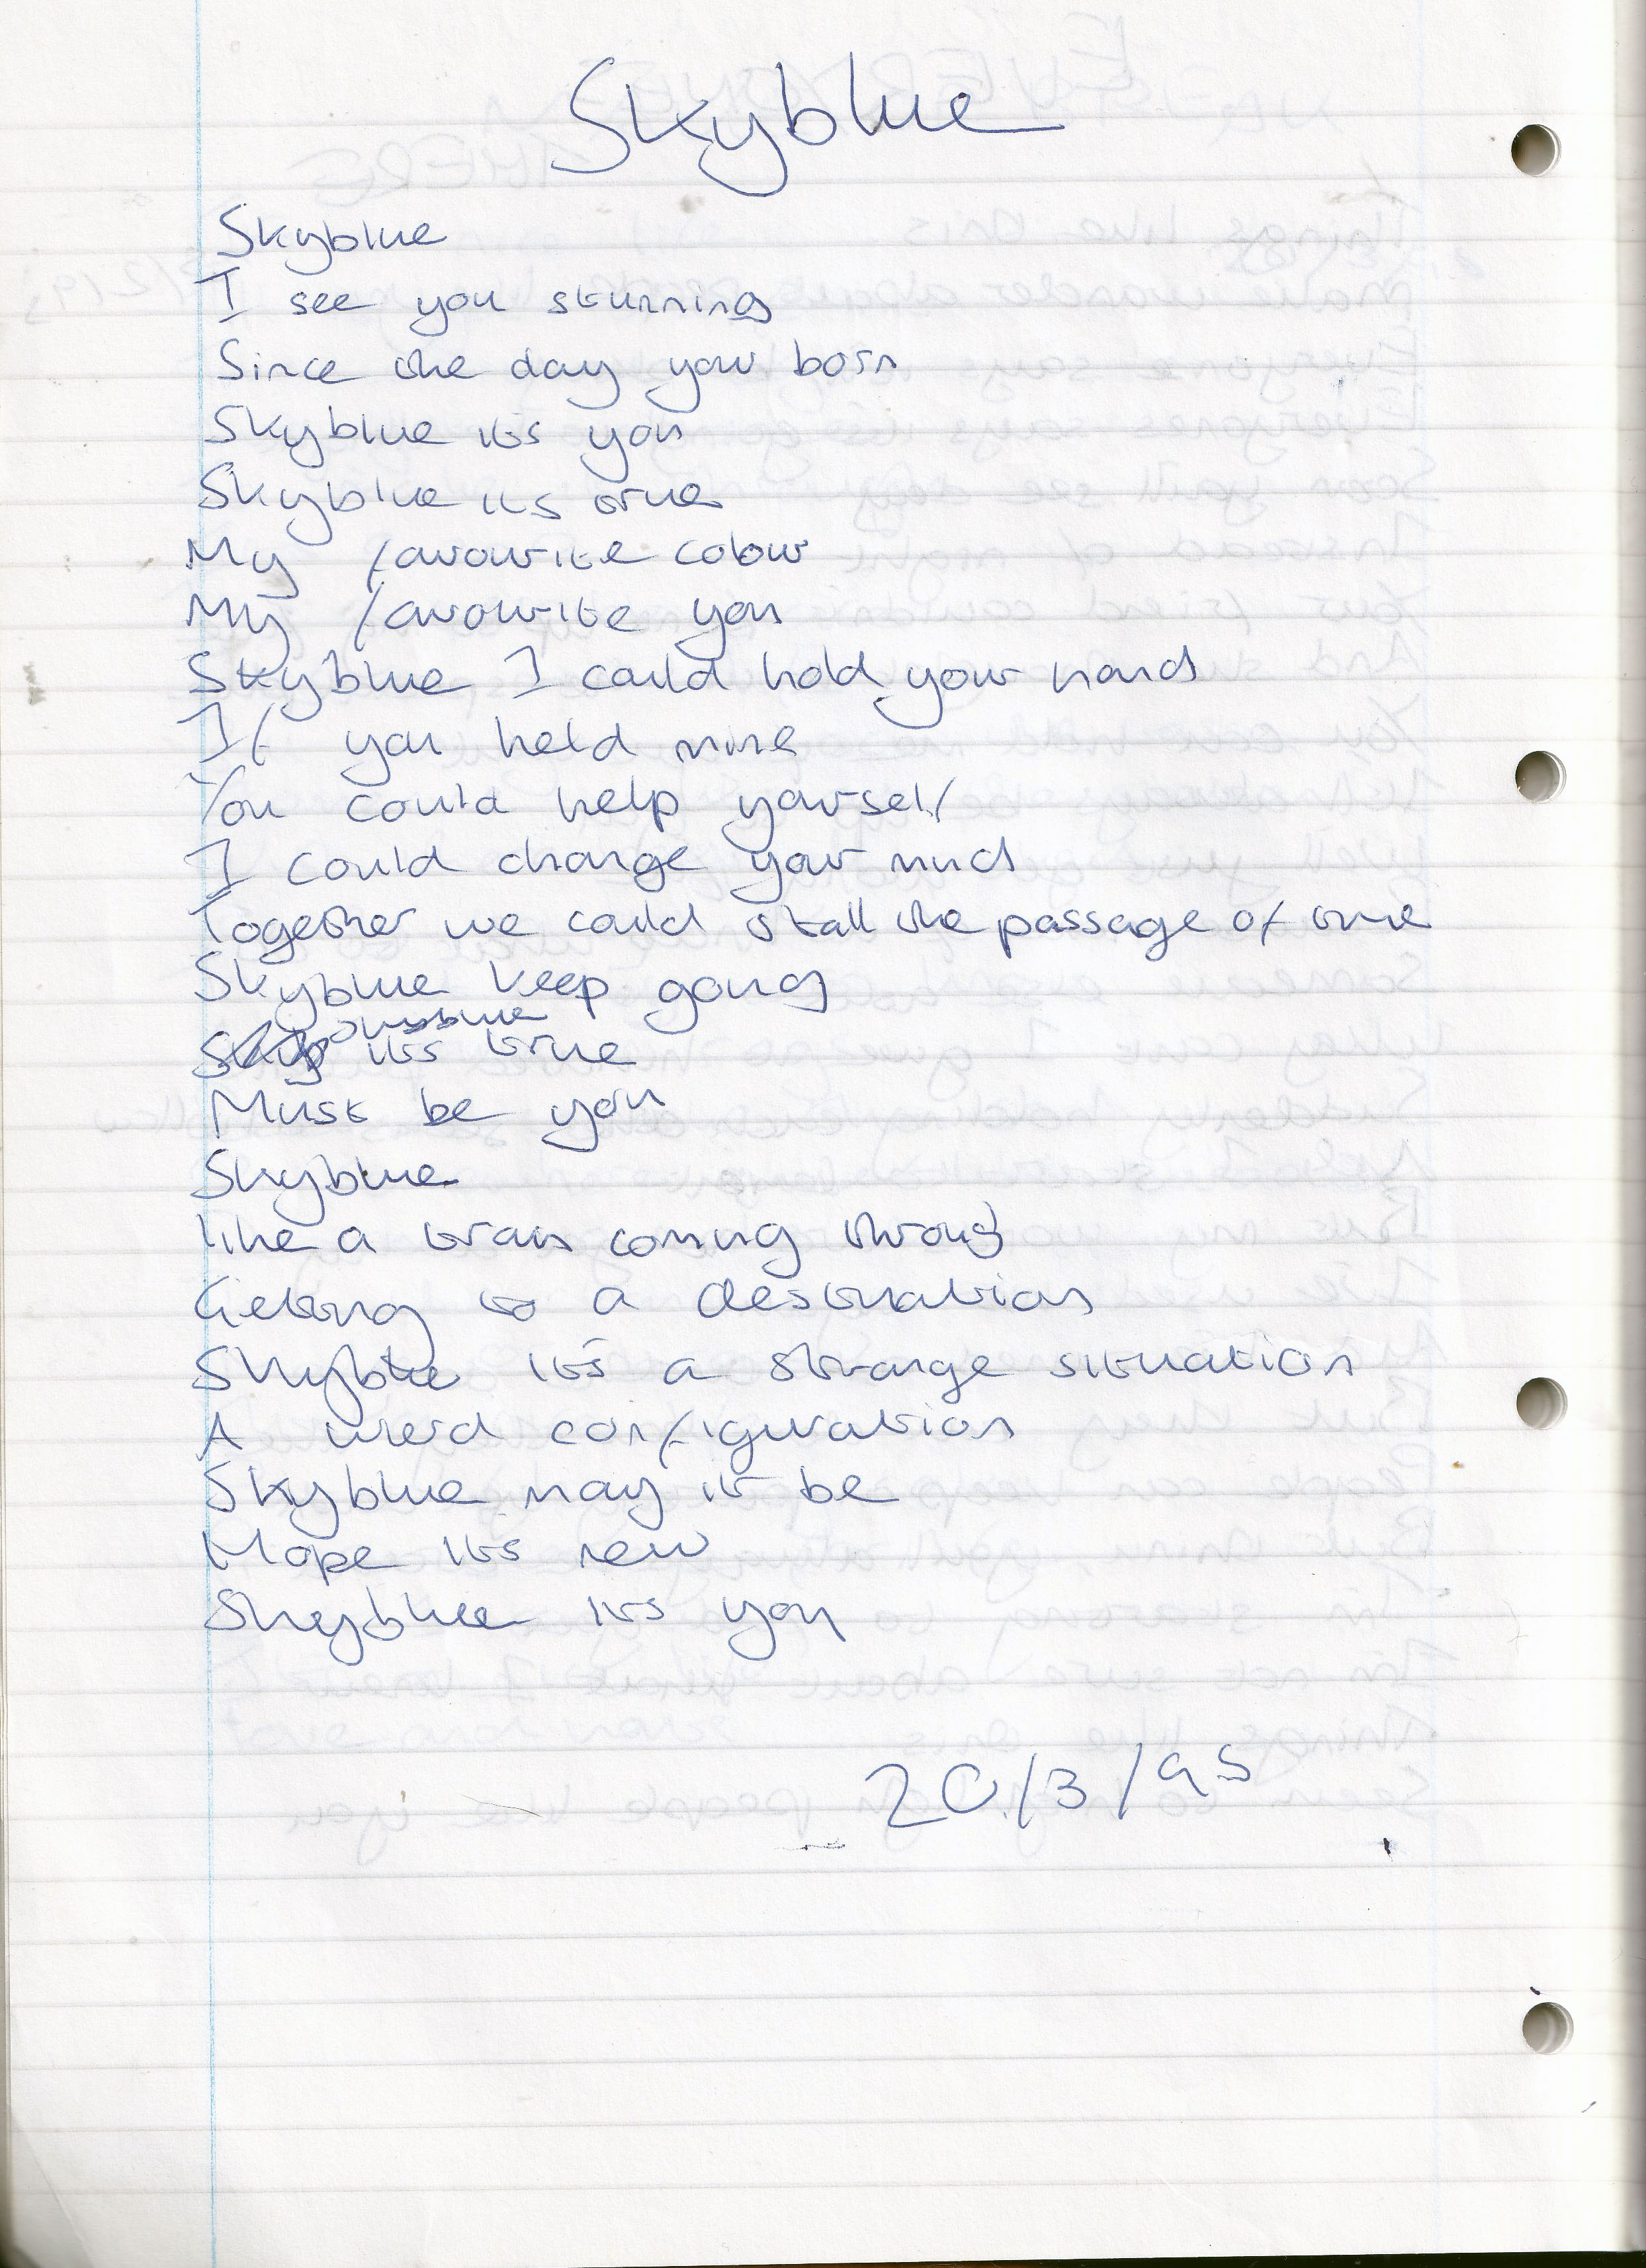 Skyblue
Skyblue
I see you stunning
Since the day your born
Skyblue its you
Skyblue its true
My favourite colour
My favourite you
Skyblue I could hold your hand
If you held mine
You could help yourself
I could change your mind
Together we could stall the passage of time
Skyblue keep going
its true
Must be you
Skyblue
like a train coming through
Getting to a destination
Skyblue its a strange situation
A wierd configuration
Skyblue may it be
Hope its new
Skyblue its you
20/3/95